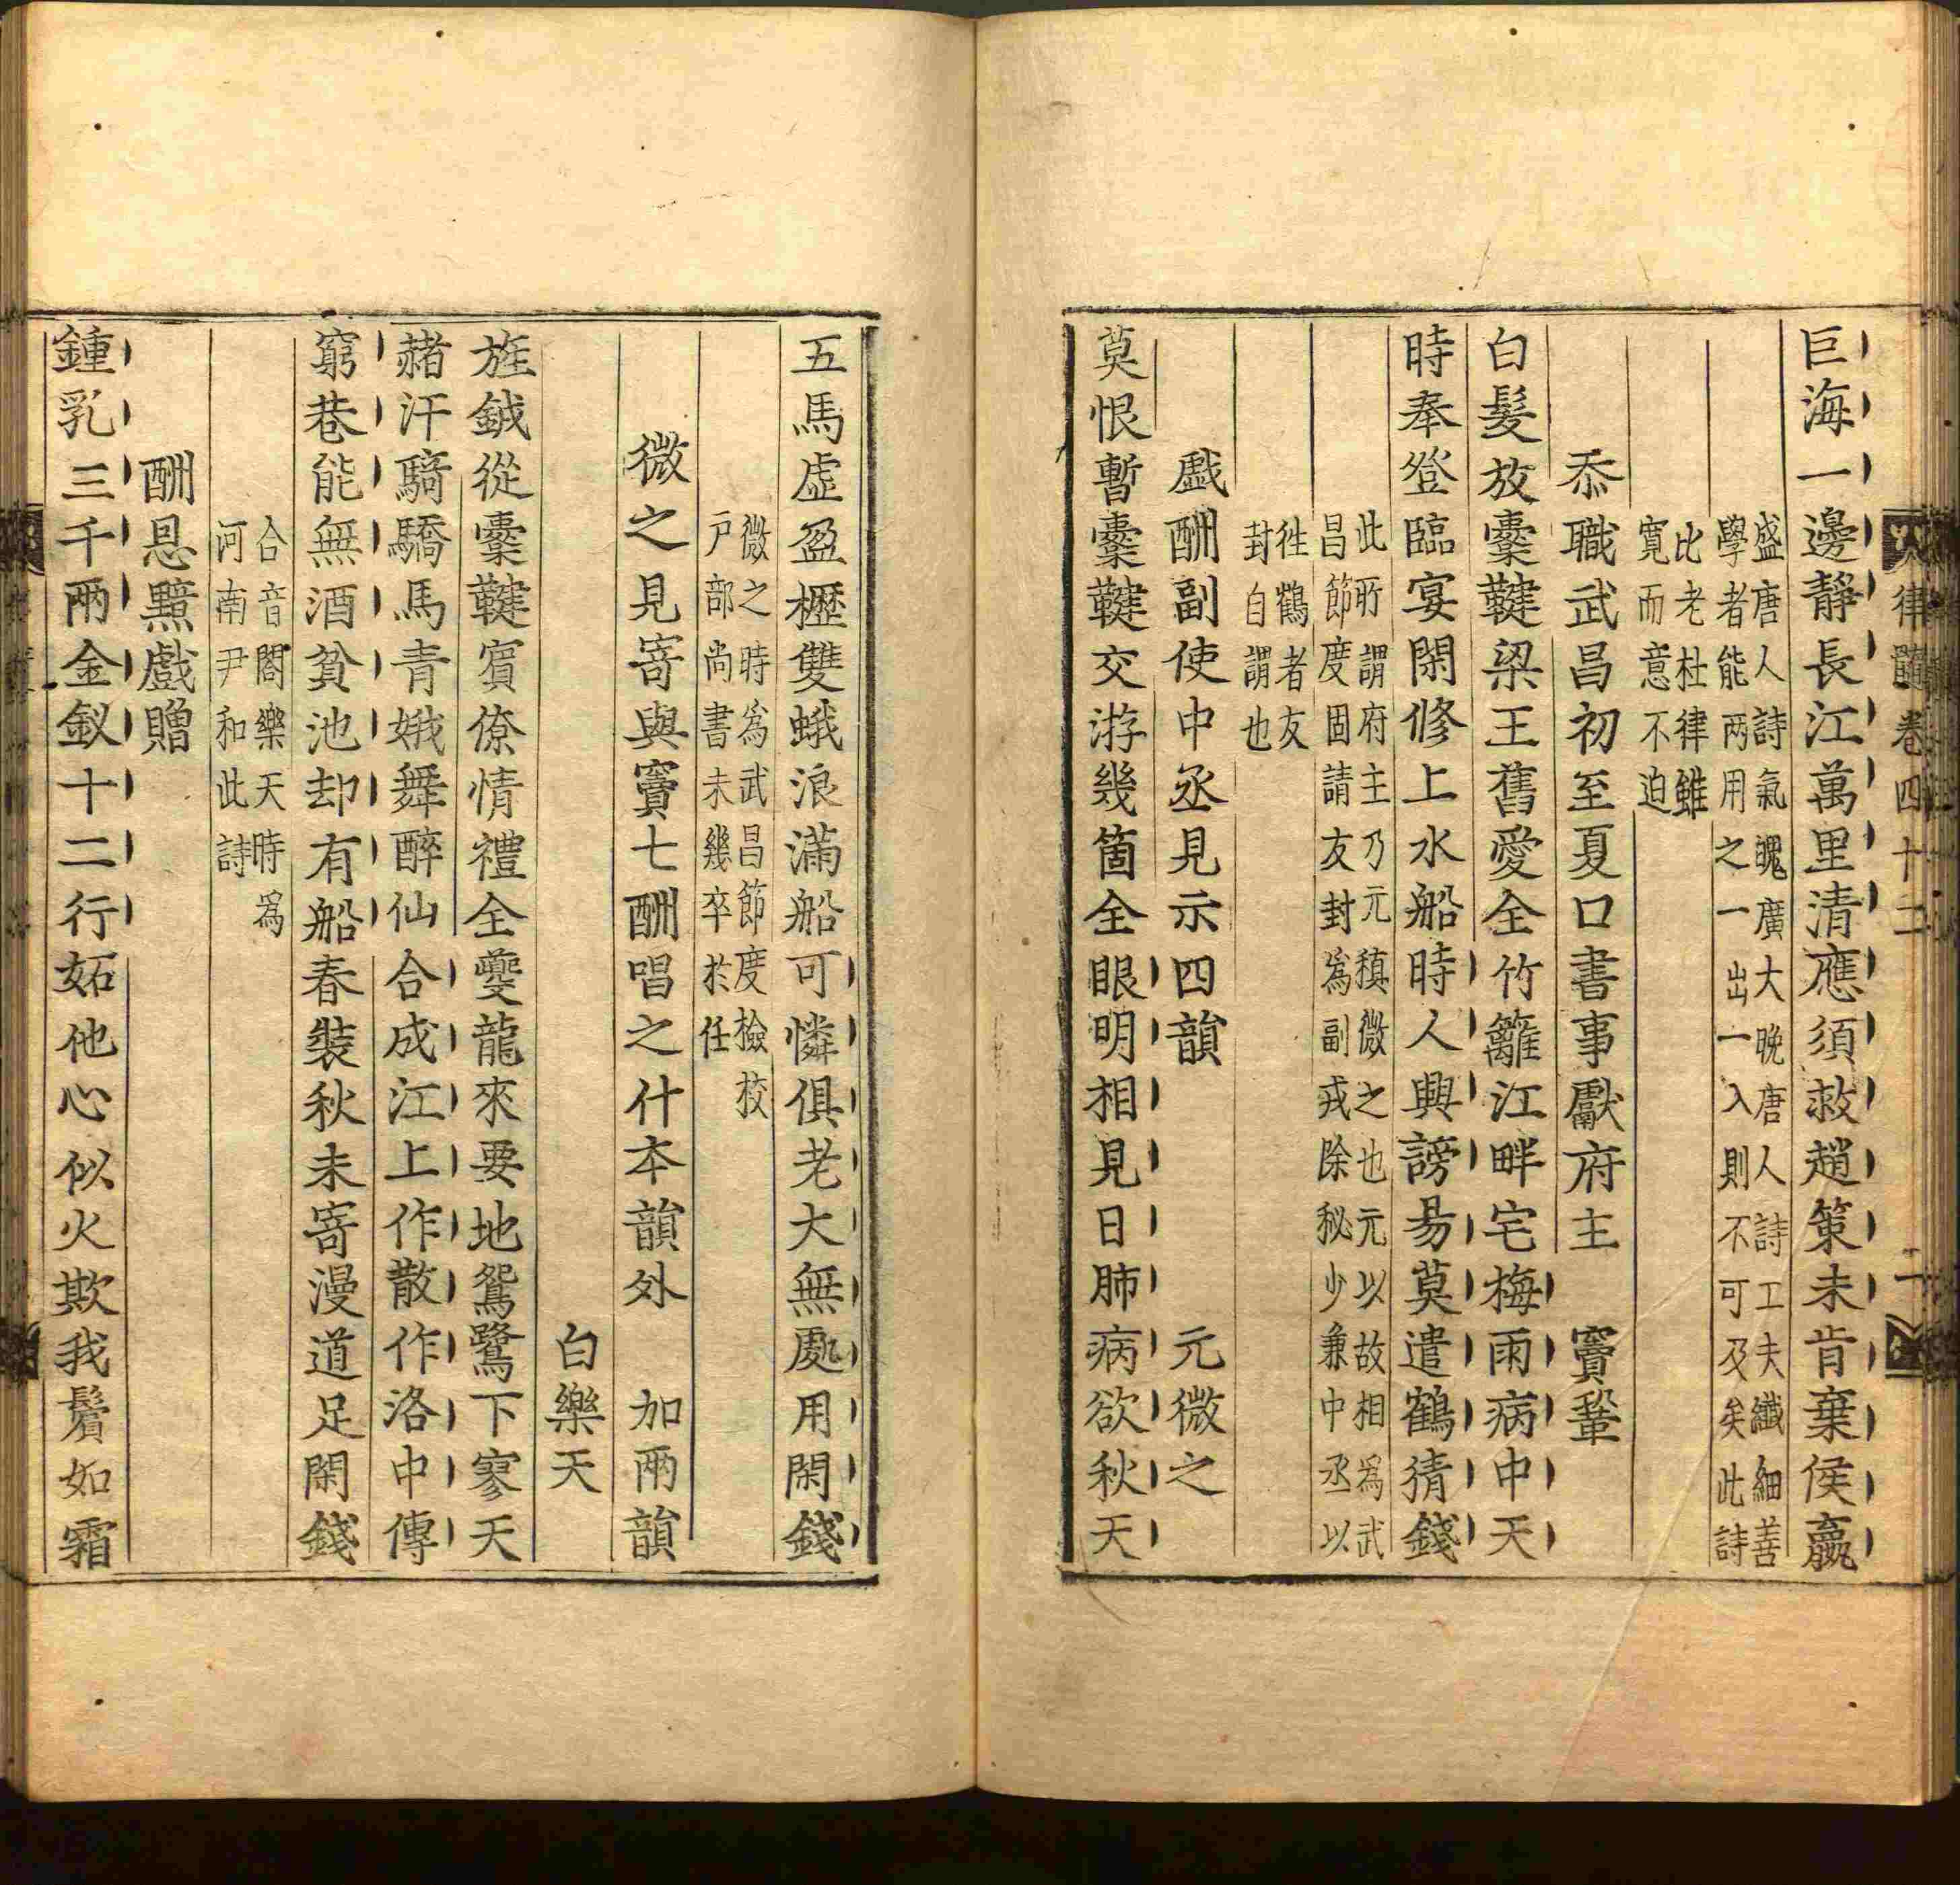 律髓卷四十二
二
巨海一邊靜長江萬里清應須救趙策未肯棄侯嬴
盛唐人詩氣魄廣大晚唐人詩工夫纖細善
學者能兩用之一出一入則不可及矣此詩
比老杜律雖
寛而意不迫
忝職武昌初至夏口書事獻府主 竇鞏
白髮放櫜鞬梁王舊愛全竹籬江畔宅梅雨病中天
時奉登臨宴閑修上水船時人興謗易莫遣鶴猜錢
此所謂府主乃元稹微之也元以故相爲武
昌節度固請友封爲副戎除秘少兼中丞以
徃鶴者友
封自謂也
戲酬副使中丞見示四韻 元微之
莫恨暫櫜鞬交游幾箇全眼明相見日肺病欲秋天
五馬虛盈櫪雙蛾浪滿船可憐俱老大無處用閑錢
微之時爲武昌節度撿校
户部尚書未幾卒於任
微之見寄與竇七酬唱之什本韻外 加兩韻
白樂天
旌鉞從櫜鞬賔僚情禮全夔龍來要地鴛鷺下寥天
赭汗騎驕馬青娥舞醉仙合成江上作散作洛中傳
窮巷能無酒貧池却有船春裝秋未寄漫道足閑錢
合音閤樂天時爲
河南尹和此詩
酬思黯戲贈
鍾乳三千兩金釵十二行妬他心似火欺我鬢如霜